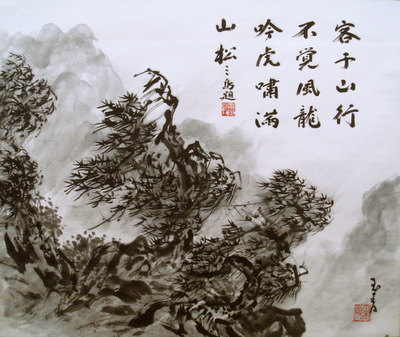 客子山行
不覚風龍
吟虎嘯滿
山松